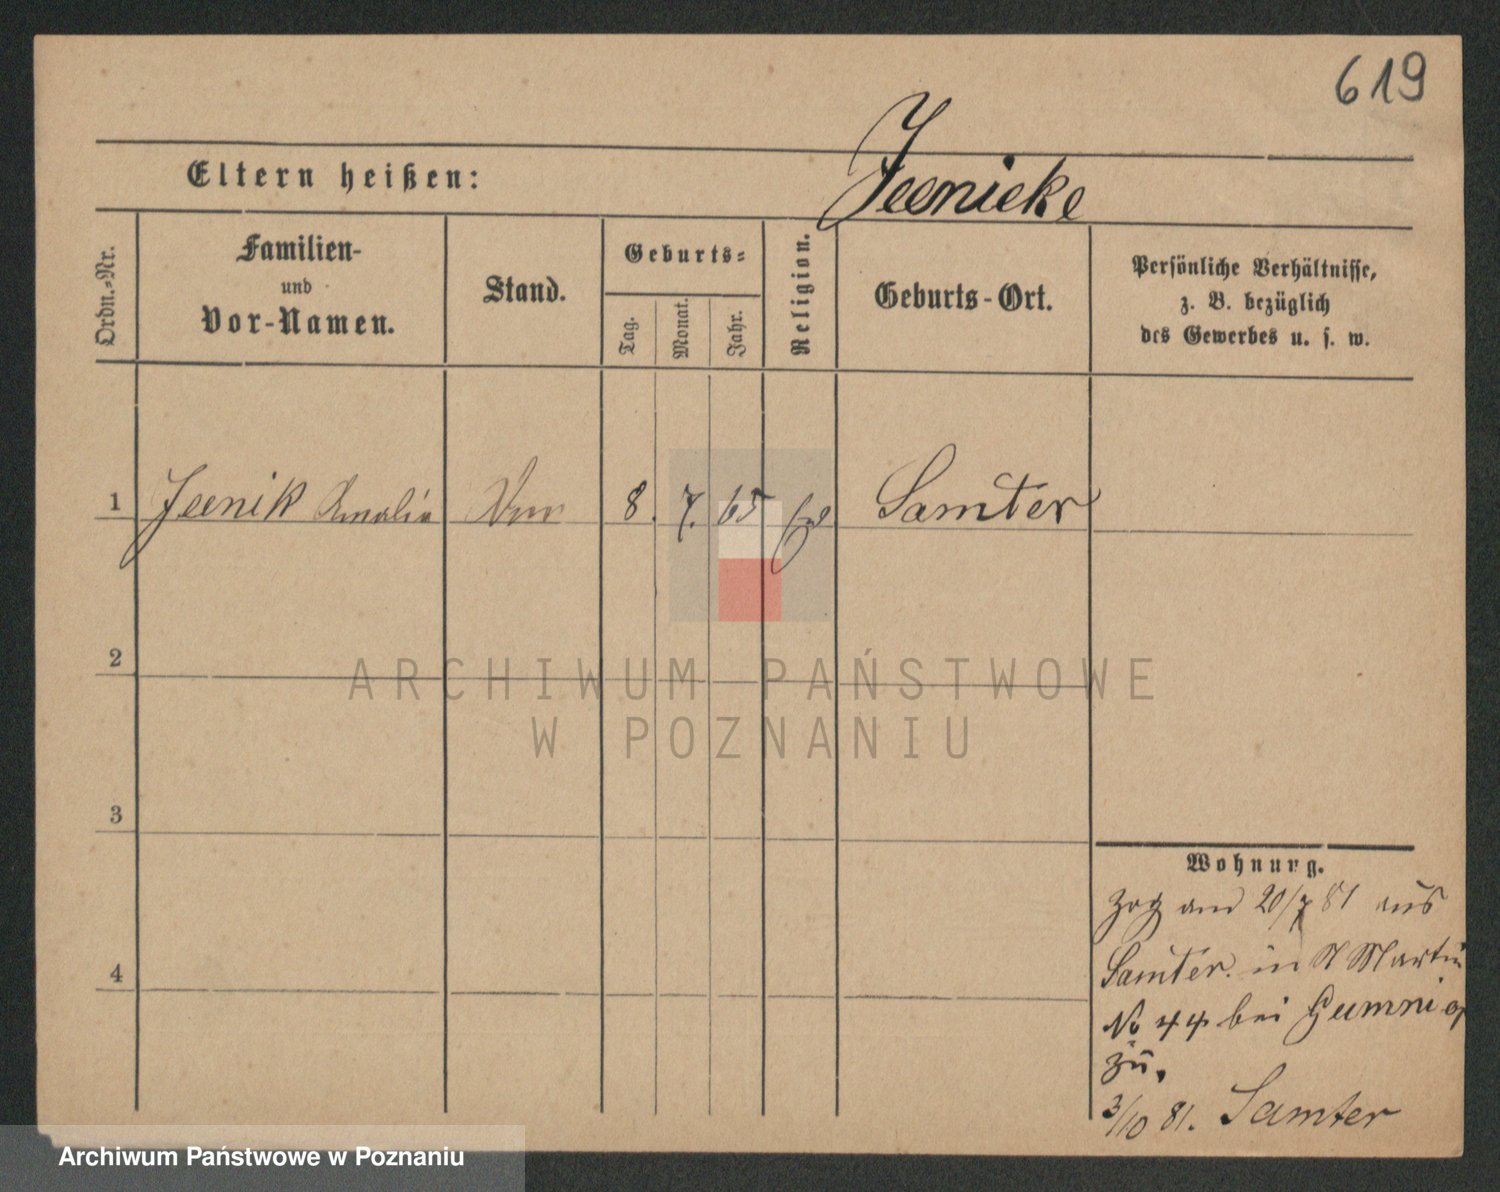 619
Eltern heißen: Jeenicke
Ordn.-Nr.
Familien-
und
Vor-Namen.
Stand.
Geburts-
Tag.
Monat.
Jahr.
Religion.
Geburts-Ort.
Persönliche Verhältnisse,
z. B. bezüglich
des Gewerbes u. s. w.
1 Jeenik Amalia 8. 7. 65 Samter
2
3
4
Wohnung.
zog am 20/7 81 aus
Samter in St Martin
No 44 bei
zu.
3/10 81. Samter
ARCHIWUM PAŃSTWOWE
W POZNANIU
Archiwum Państwowe w Poznaniu